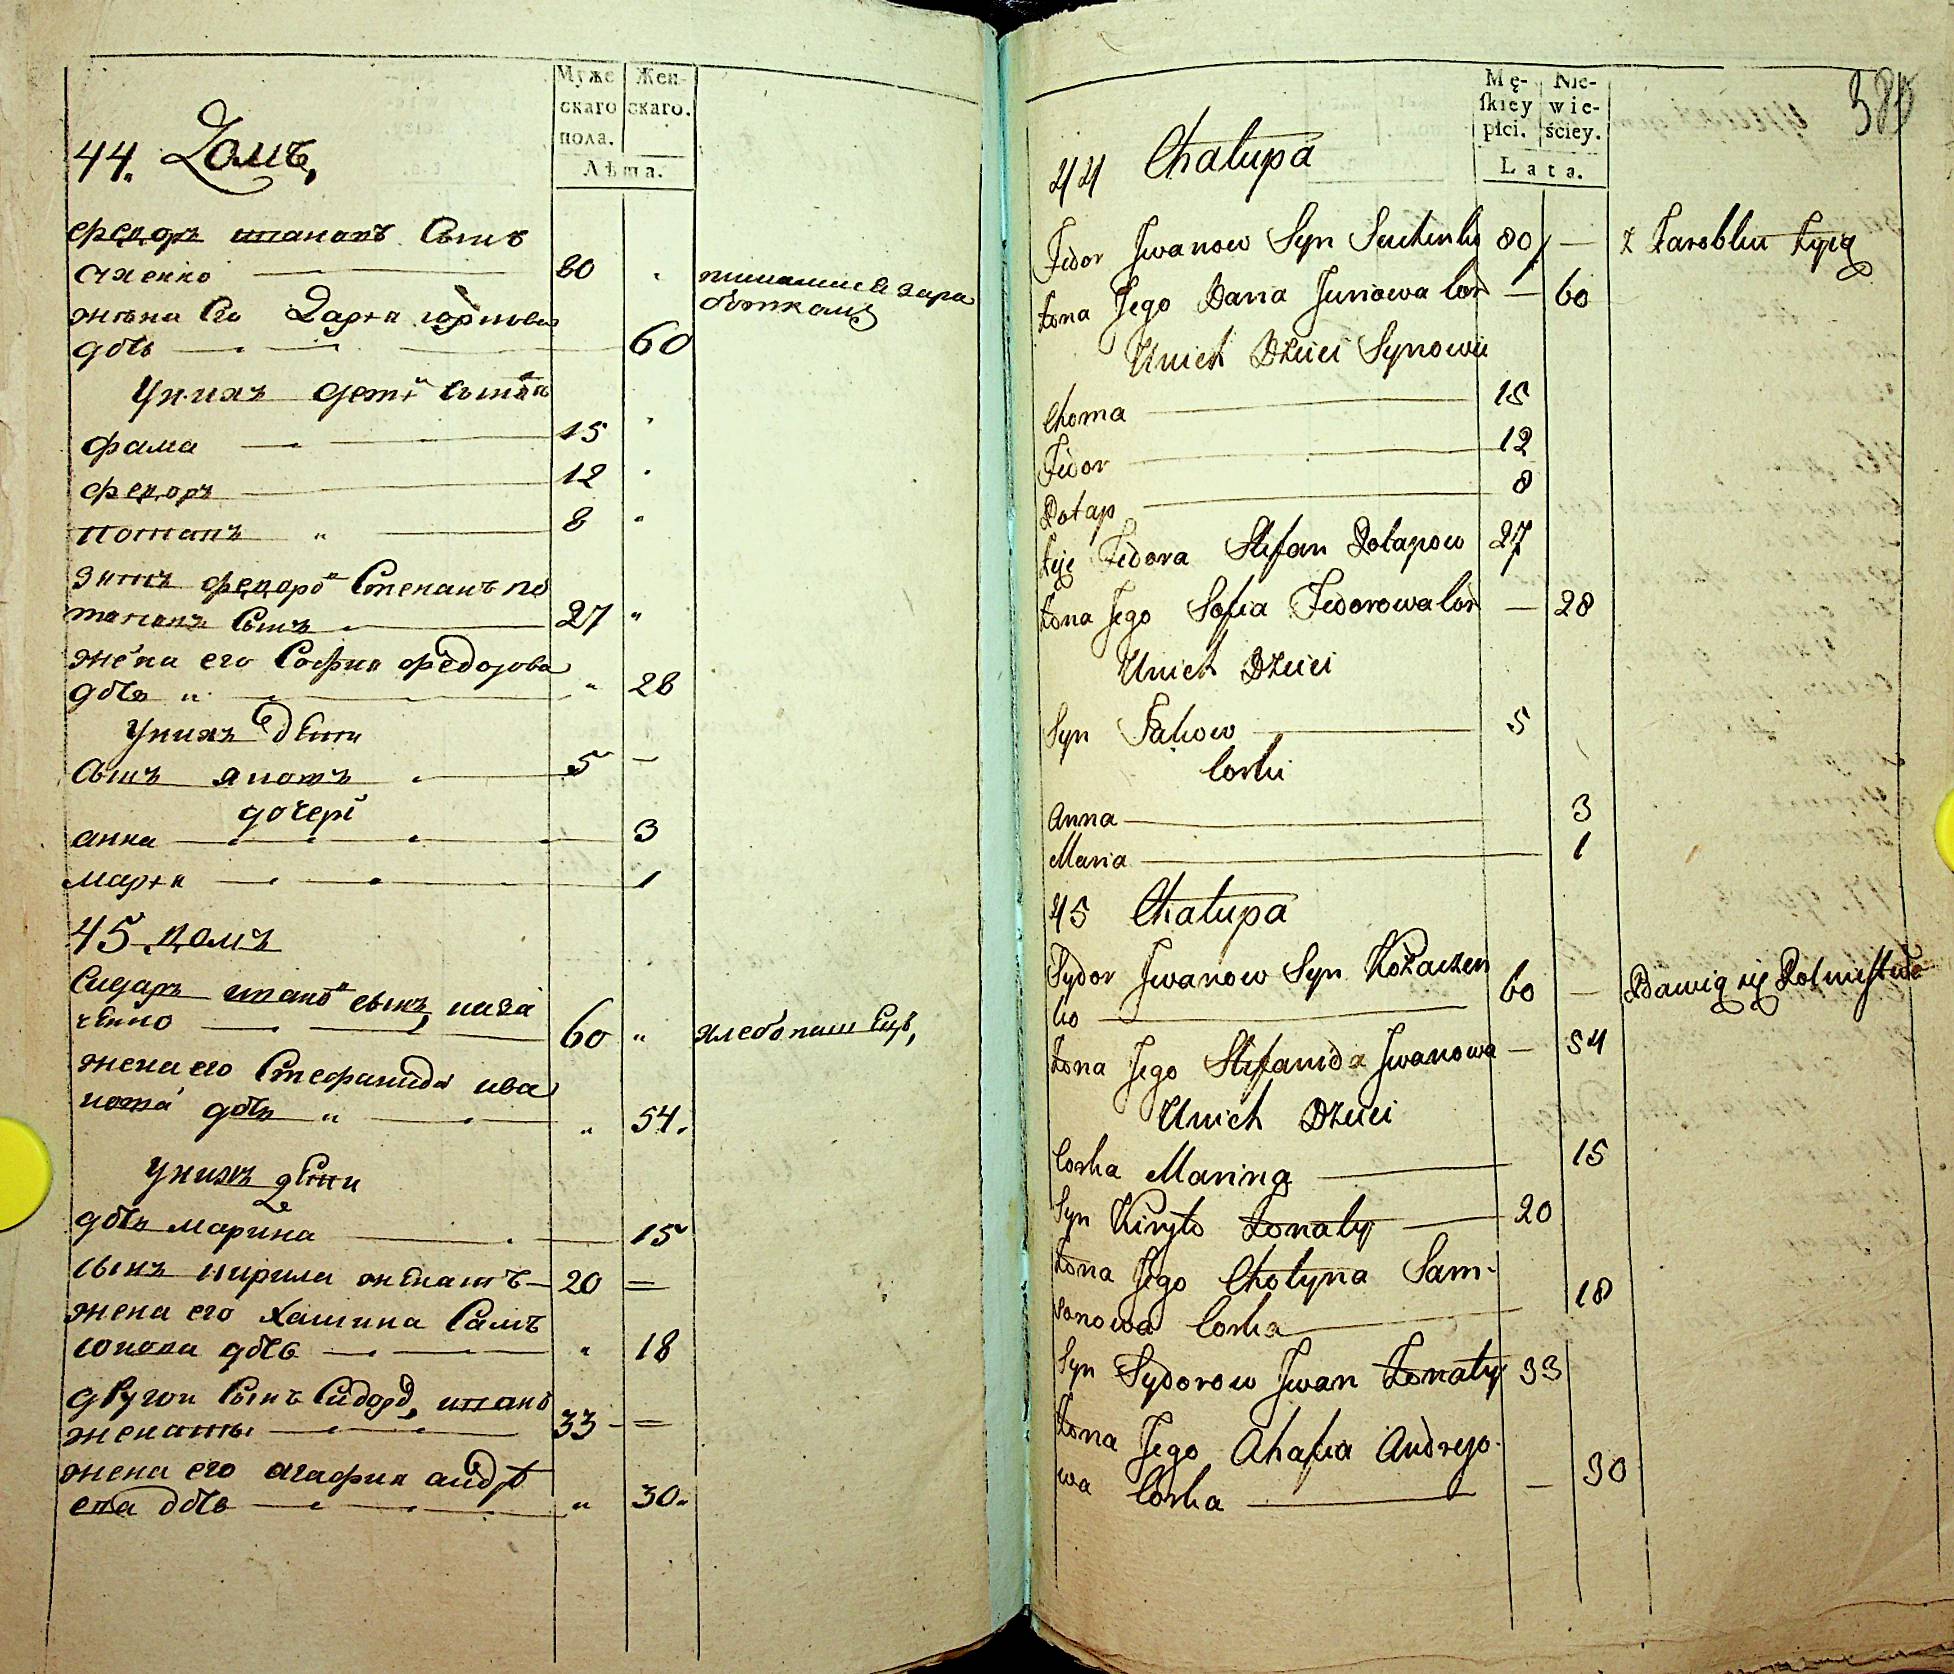 Муже
скаго
пола.
Жен-
скаго.
Лѣта.
44. Домъ,
Федоръ ивановъ Сынъ
80
жена Его Дарка юрковва
дочь 60
Унихъ дети сыновя
фама 15
федоръ 12
потапъ 8
зять федоро Степанъ по
таповъ Сынъ 27
жена его София федорова
дочь 28
Унихъ дети
Сынъ яковъ 5
дочери
анна 3
мария 1
45 домъ
Сидаръ ивано сынъ, каза
ченко 60 хлебопашецъ,
жена его Стефанида ива
нова дочь 54.
унихъ дети
дочь марина 15
сынъ кирила женатъ 20
жена его Хатина Самъ
сонова дочь 18
другои Сынъ Сидора, иванъ
женаты 33
жена его агафия андре
ева дочь 30.
Mę-
ſkiey
płci.
Nie-
wie-
ściey.
Lata.
44 Chałupa
Fedor Jwanow Syn 80 — z Zarobku żyią
żona Jego Daria Juriowa Cor — 60
Unich Dzieci Synowie
Choma 15
Fedor 12
Potap 8
Zięć Fedora Stefan Potapow 27
żona Jego Sofia Fedorowa Cor — 28
Unich Dzieci
Syn Jakow 5
Corki
Anna 3
Maria 1
45 Chałupa
Sydor Jwanow Syn Kozaczen
ko 60 — Bawią się Rolnictwe
żona Jego Stefanida Jwanowa — 54
Unich Dzieci
Corka Marina 15
Syn Kiryło żonaty 20
żona Jego Chotyna Sam-
sonowa Corka 18
Syn Sydorow Jwan żonaty 33
żona Jego Ahafia Andrejo-
wa Corka — 30